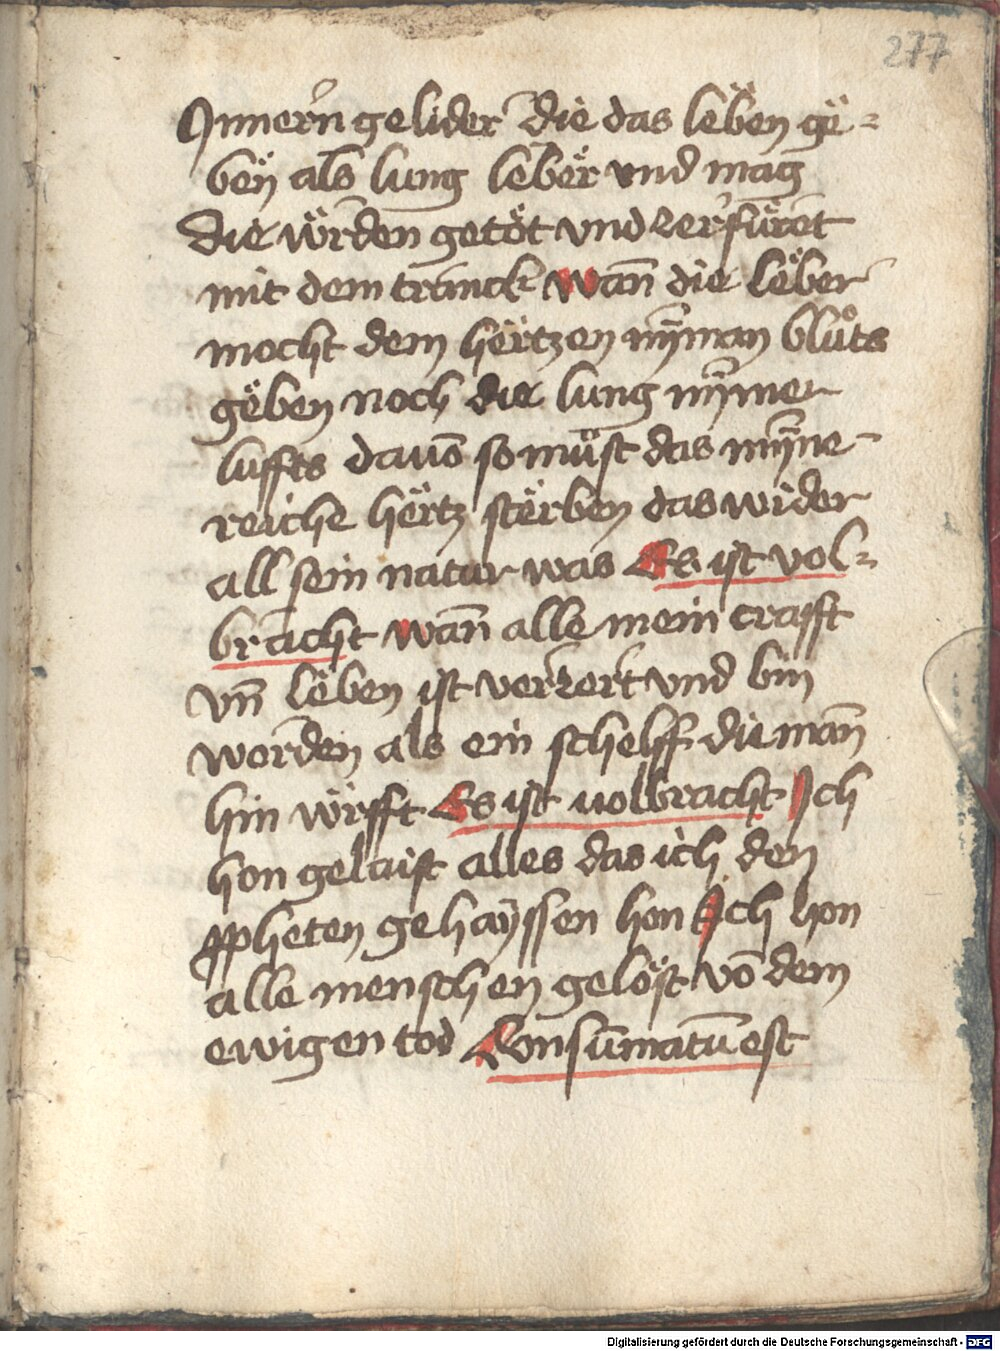 277
Jnnern gelider die das lëben gë-
bën als lung lebër vnd mag
die wërden getöt vnd zerfüret
mit dem tranck wañ die lëber
mocht dem hërtzen nỹman blůts
gëben noch die lung nỹmer
luffts dauō so müst das mỹne-
reiche hërtz stërben das wider
all sein natur was Es ist vol-
bracht wañ alle mein crafft
vñ lëben ist verzert vnd bin
worden als ein schelff die man
hin wirfft Es ist uolbracht Jch
hon gelaist alles das ich den
ppheten gehaÿssen hon Jch hon
alle menschen gelöst vō dem
ewigen tod Consūmatū est
Digitalisierung gefördert durch die Deutsche Forschungsgemeinschaft - DFG